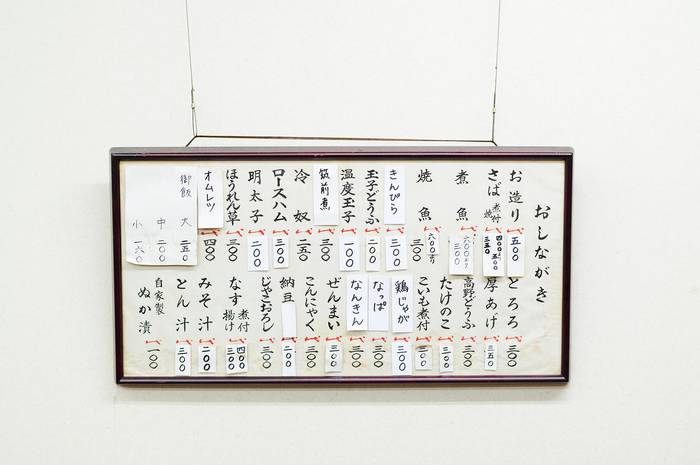 おしながき
お造り 五〇〇
さば 煮付 焼 四〇〇 五〇〇 三五〇
煮魚 六〇〇より 三〇〇
焼魚 六〇〇より 三〇〇
きんぴら 三〇〇
玉子どうふ 二〇〇
温度玉子 一〇〇
筑前煮 三〇〇
冷奴 二五〇
ロースハム 三〇〇
明太子 二〇〇
ほうれん草 三〇〇
オムレツ 四〇〇
御飯 大 二五〇
中 二〇〇
小 一六〇
とろろ 三〇〇
厚あげ 三五〇
高野どうふ 三〇〇
たけのこ 三〇〇
こいも煮付 三〇〇
鶏じゃが 三〇〇
なっぱ 三〇〇
なんきん 三〇〇
ぜんまい 三〇〇
こんにゃく 三〇〇
納豆 二〇〇
じゃこおろし 三〇〇
なす 煮付 揚げ 四〇〇 三〇〇
みそ汁 二〇〇
とん汁 三〇〇
自家製 ぬか漬 一〇〇